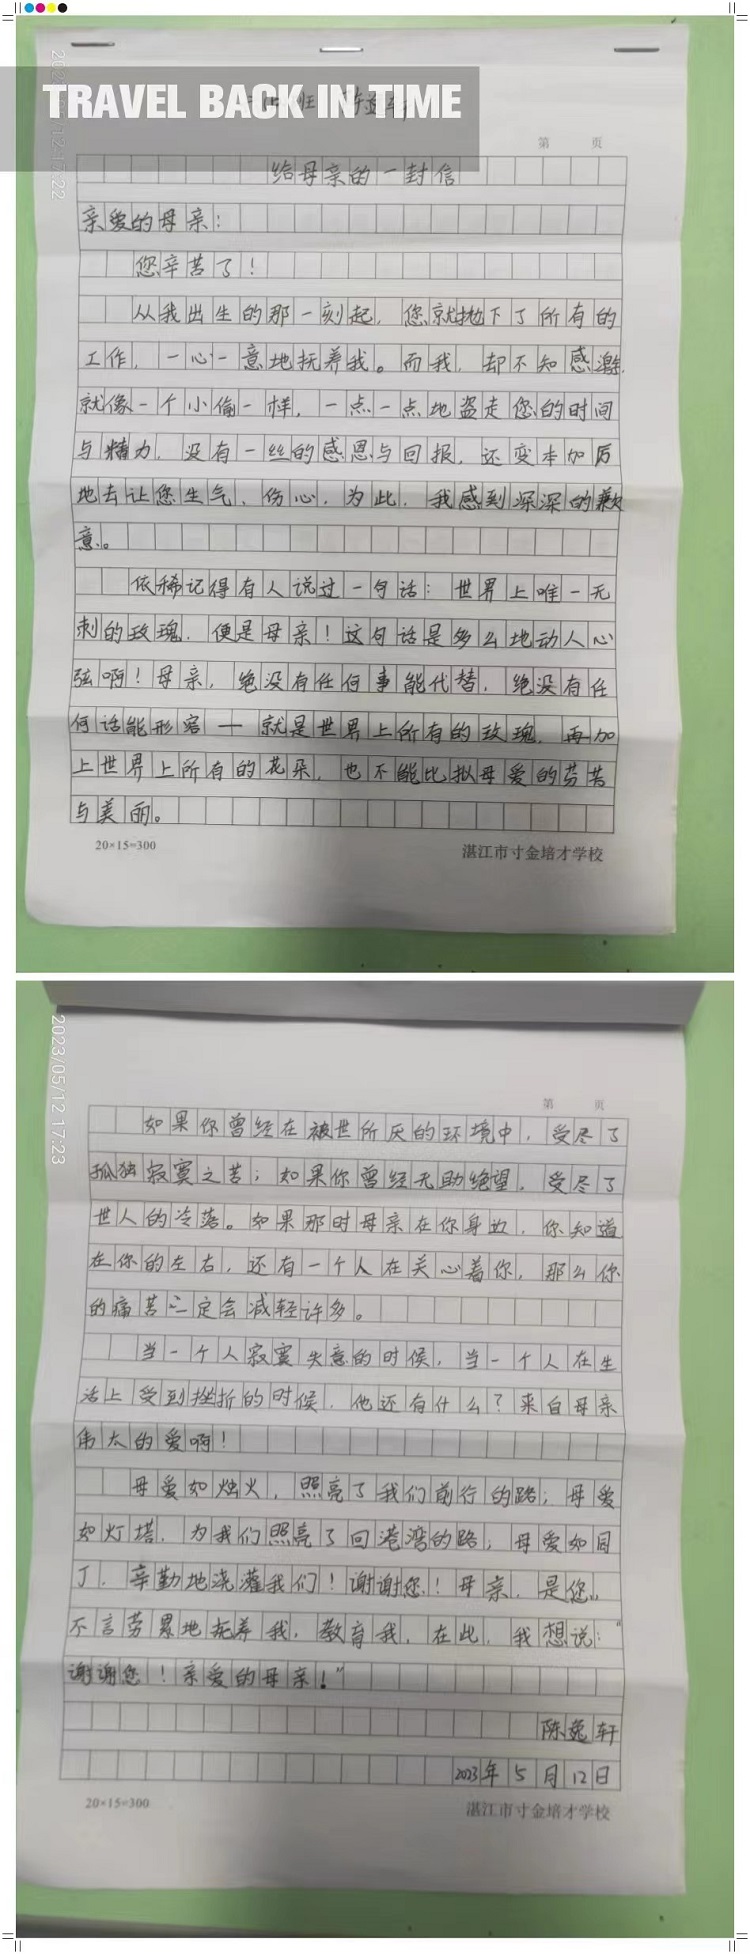 TRAVEL BACK IN TIME
第 页
给母亲的一封信
亲爱的母亲：
您辛苦了！
从我出生的那一刻起，您就抛下了所有的
工作，一心一意地抚养我。而我，却不知感激，
就像一个小偷一样，一点一点地盗走您的时间
与精力，没有一丝的感恩与回报，还变本加厉
地去让您生气、伤心，为此，我感到深深的歉
意。
依稀记得有人说过一句话：世界上唯一无
刺的玫瑰，便是母亲！这句话是多么地动人心
弦啊！母亲，绝没有任何事能代替，绝没有任
何话能形容——就是世界上所有的玫瑰，再加
上世界上所有的花朵，也不能比拟母爱的芬芳
与美丽。
20×15=300
湛江市寸金培才学校
2023/05/12 17:23
第 页
如果你曾经在被世所厌的环境中，受尽了
孤独寂寞之苦；如果你曾经无助绝望，受尽了
世人的冷落。如果那时母亲在你身边，你知道
在你的左右，还有一个人在关心着你，那么你
的痛苦一定会减轻许多。
当一个人寂寞失意的时候，当一个人在生
活上受到挫折的时候，他还有什么？来自母亲
伟大的爱啊！
母爱如烛火，照亮了我们前行的路；母爱
如灯塔，为我们照亮了回港湾的路；母爱如园
丁，辛勤地浇灌我们！谢谢您！母亲，是您，
不言劳累地抚养我，教育我，在此，我想说：“
谢谢您！亲爱的母亲！”
陈逸轩
2023年5月12日
20×15=300
湛江市寸金培才学校